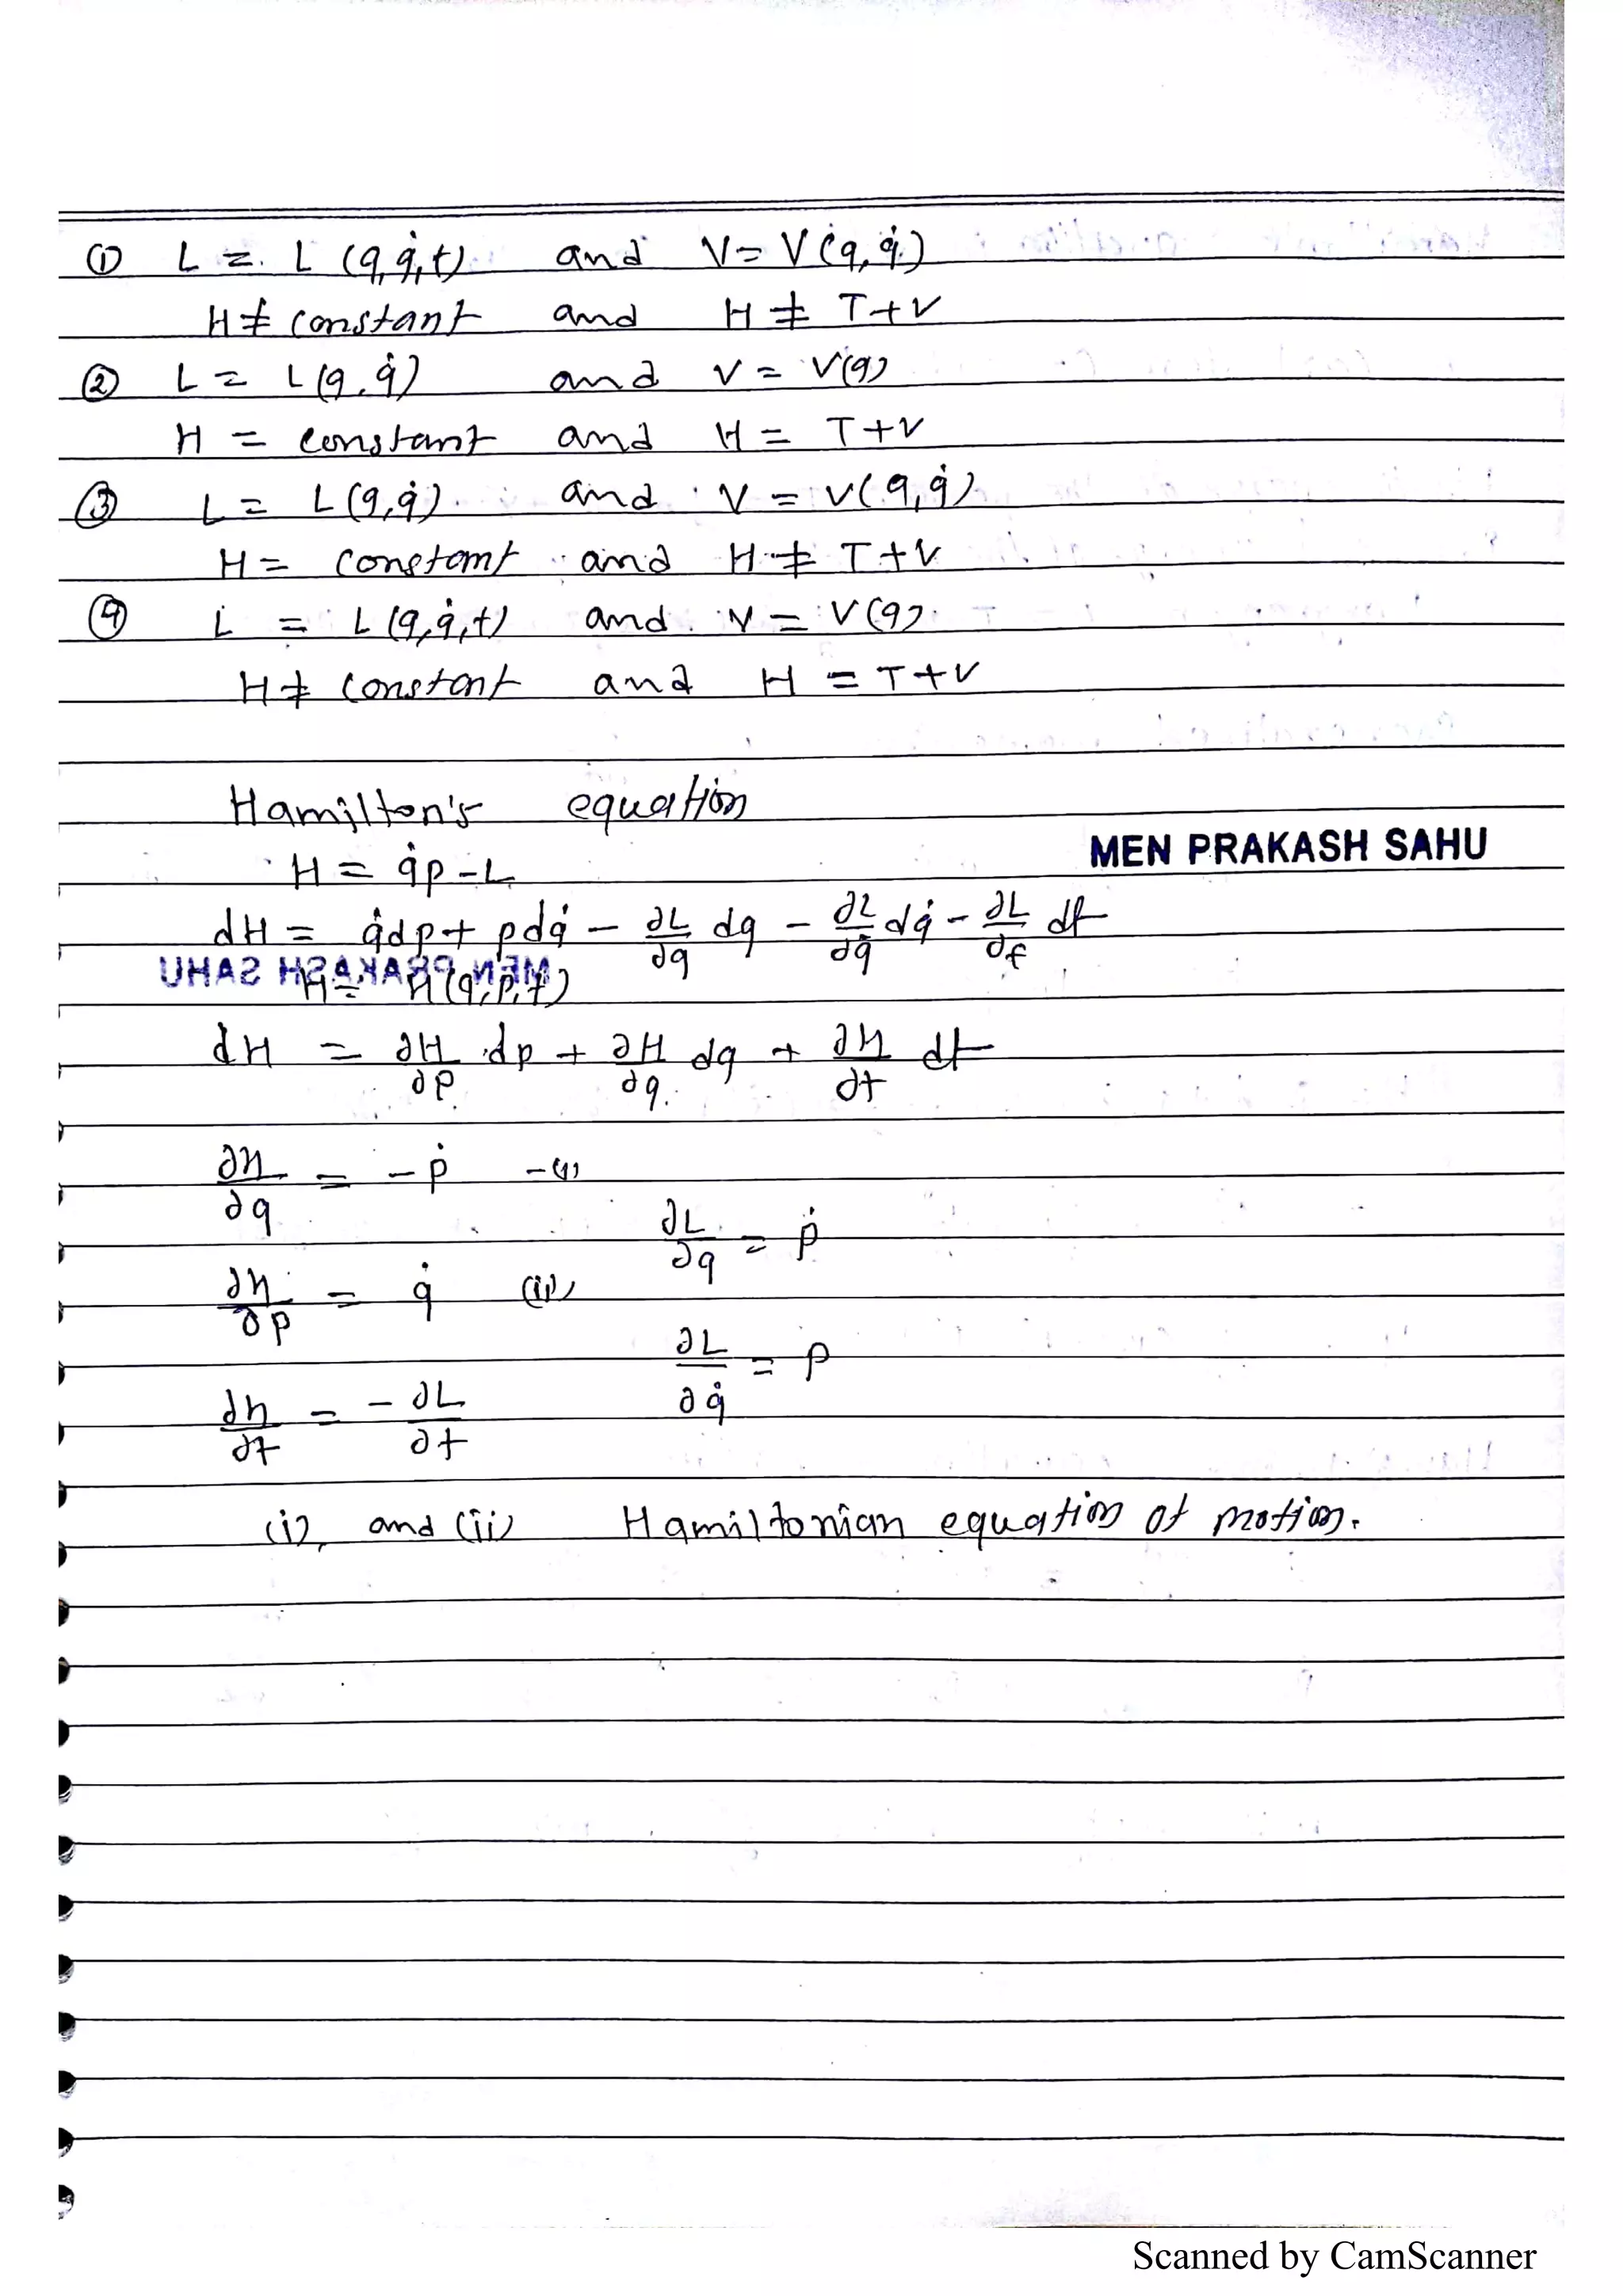 ① L = L (q,q̇,t) and V = V(q,q̇)
H ≠ constant and H ≠ T+V
② L = L(q,q̇) and V = V(q)
H = constant and H = T+V
③ L = L(q,q̇) and V = V(q,q̇)
H = constant and H ≠ T+V
④ L = L(q,q̇,t) and V = V(q)
H ≠ constant and H = T+V
Hamilton's equation
MEN PRAKASH SAHU
H = q̇p - L
dH = q̇dp + pdq̇ - ∂L/∂q dq - ∂L/∂q̇ dq̇ - ∂L/∂t dt
MEN PRAKASH SAHU
H = H(q,p,t)
dH = ∂H/∂p dp + ∂H/∂q dq + ∂H/∂t dt
∂H/∂q = -ṗ -(i)
∂L/∂q = ṗ
∂H/∂p = q̇ (ii)
∂L/∂q̇ = p
∂H/∂t = -∂L/∂t
(i), and (ii) Hamiltonian equation of motion.
Scanned by CamScanner